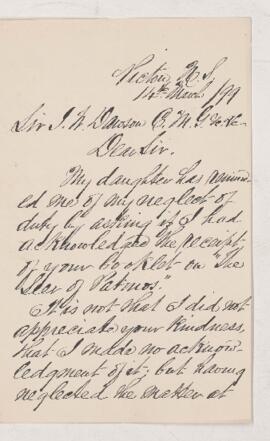 Pictou, N.S.
14th March /99
Sir J. W. Dawson C.M.G. &c &c
Dear Sir.
My daughter has remind-
ed me of my neglect of
duty by asking if I had
acknowledged the receipt
of your booklet on "The
Seer of Patmos."
It is not that I did not
appreciate your kindness,
that I made no acknow-
ledgment of it; but having
neglected the matter at